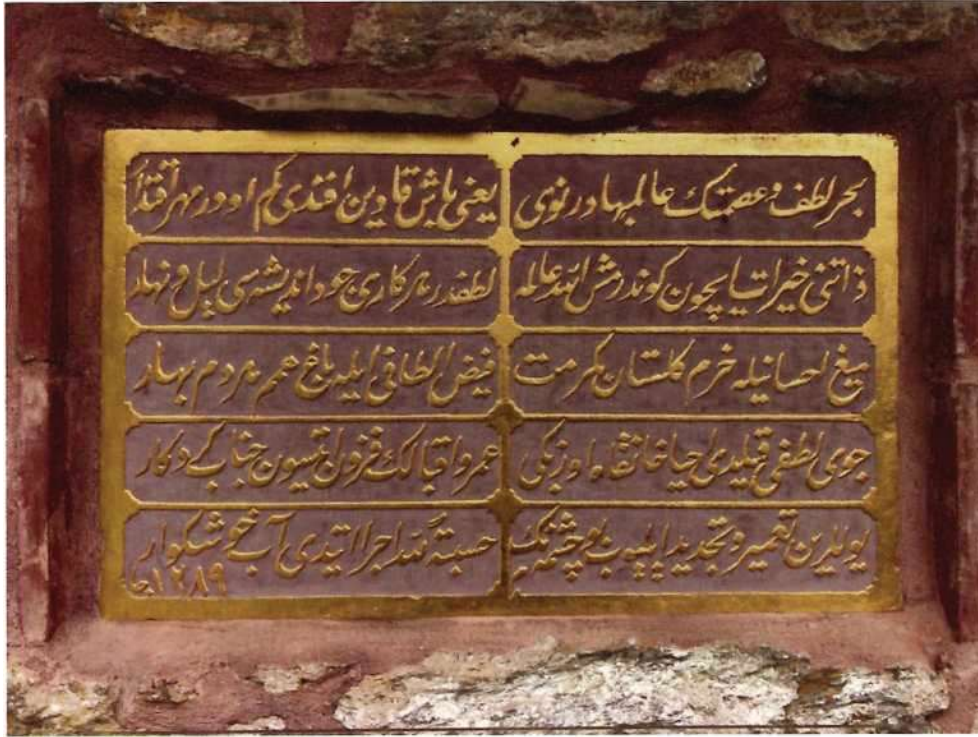 بحر لطف و عصمتك عالمبها در نوی یعنی باش قادین افندی کم اودر مهر اقتدار
ذاتنی خیرات ایچون کوندرمش الله عالمه لطفدر هر کاری جود اندیشه سی لیل و نهار
احسانیله خرم کلستان مکرمت فیض الطافی ایله باغ همم هر دم بهار
جوی لطفی قیلدی احیا خانقاه اوزبکی عمر و اقبالك فزون ایتسون جناب کردکار
یوللرین تعمیر و تجدید ایلیوب بو چشمه نك حسبة لله اجرا ایتدی آب خوشکوار
١٢٨٩